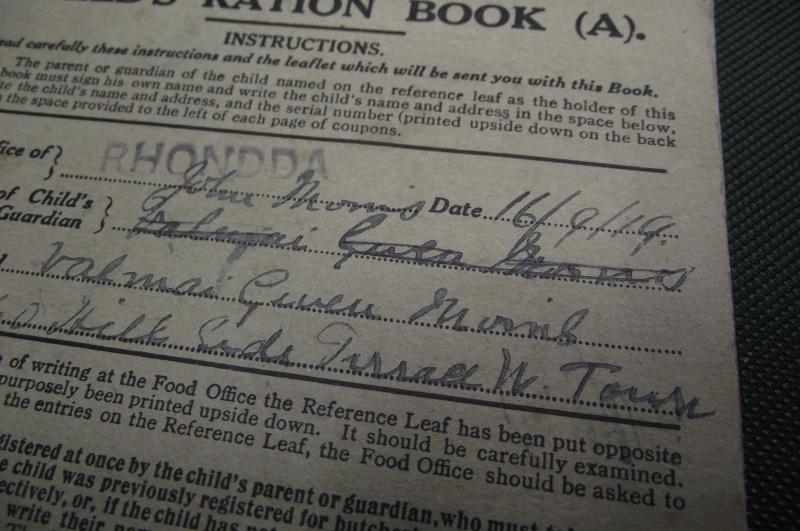 RATION BOOK (A).
INSTRUCTIONS.
read carefully these instructions and the leaflet which will be sent you with this Book.
The parent or guardian of the child named on the reference leaf as the holder of this
book must sign his own name and write the child's name and address in the space below,
the child's name and address, and the serial number (printed upside down on the back
the space provided to the left of each page of coupons.
ffice of} RHONDDA
of Child's Guardian } John Morris Date 16/9/19.
Valmai Gwen Morris
Hill Side Terrace W. Town
of writing at the Food Office the Reference Leaf has been put opposite
purposely been printed upside down. It should be carefully examined.
the entries on the Reference Leaf, the Food Office should be asked to
gistered at once by the child's parent or guardian, who must
e child was previously registered for
ectively, or, if the child has
write their